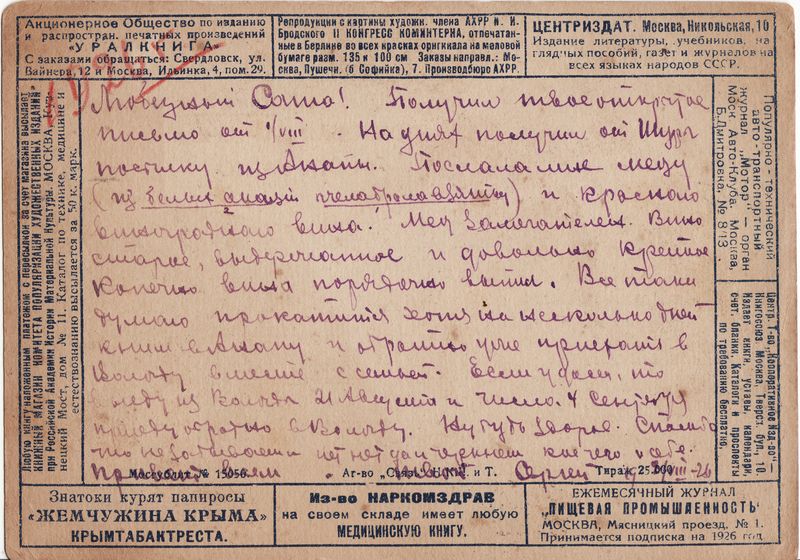 Акционерное Общество по изданию
и распростран. печатных произведений
"УРАЛКНИГА"
С заказами обращаться: Свердловск, ул.
Вайнера, 12 и Москва, Ильинка, 4, пом. 29.
Репродукции с картины художн. члена АХРР И. И.
Бродского II КОНГРЕСС КОМИНТЕРНА, отпечатан-
ные в Берлине во всех красках оригинала на меловой
бумаге разм. 135 и 100 см Заказы направл.: Мо-
сква, Пушечн. (б Софийка), 7. Производбюро АХРР.
ЦЕНТРИЗДАТ. Москва, Никольская, 10
Издание литературы, учебников, на
глядных пособий, газет и журналов на
всех языках народов СССР.
Любую книгу наложенным платежом с пересылкой за счет магазина высылает
КНИЖНЫЙ МАГАЗИН КОМИТЕТА ПОПУЛЯРИЗАЦИИ ХУДОЖЕСТВЕННЫХ ИЗДАНИЙ
при Российской Академии Истории Материальной Культуры. МОСКВА, Куз-
нецкий Мост, дом № 11. Каталог по технике, медицине и
естествознанию высылается за 50 к. марк.
Саша! Получил твое открытое
письмо от 1/VIII. На днях получил от Шуры
посылку из Анапы. Послала мне меду
(из белых акаций) и красного
виноградного вина. Мед замечателен. Вино
старое, выдержанное и довольно крепкое
Конечно вина порядочно выпил. Все таки
думаю прокатится хотя на несколько дней
к ним в Анапу и обратно уже приехать в
Вологду вместе с семьей. Если удася, то
выеду из Вологды 21 Августа и числа 4 Сентября
приеду обратно в Вологду. Ну будь здоров. Спасибо
что не забываешь нет нет да и черкнешь кое чего о себе.
Сергей VIII-26
Мосгублит № 15056.
Аг-во "Связь" Н.К.П. и Т.
Тираж 25.000
Популярно-технический
авто-транспортный
журнал "Мотор" — орган
Моск Авто-Клуба. Москва,
Б. Дмитровка, № 8/13
Центр. Т-во "Кооперативное Изд-во"
Книгосоюз Москва, Тверск. бул., 10.
Издает книги, уставы, календари,
счет. бланки. Каталоги и проспекты
по требованию бесплатно.
Знатоки курят папиросы
"ЖЕМЧУЖИНА КРЫМА"
КРЫМТАБАКТРЕСТА.
Из-во НАРКОМЗДРАВ
на своем складе имеет любую
МЕДИЦИНСКУЮ КНИГУ.
ЕЖЕМЕСЯЧНЫЙ ЖУРНАЛ
"ПИЩЕВАЯ ПРОМЫШЛЕННОСТЬ"
МОСКВА, Мясницкий проезд, № 1.
Принимается подписка на 1926 год.